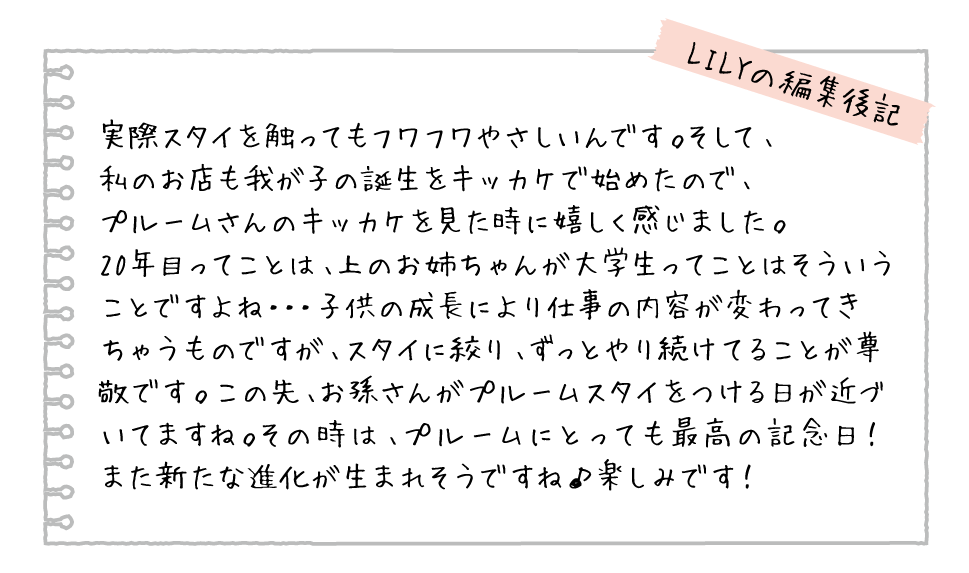 LILYの編集後記
実際スタイを触ってもフワフワやさしいんです。そして、
私のお店も我が子の誕生をキッカケで始めたので、
プルームさんのキッカケを見た時に嬉しく感じました。
20年目ってことは、上のお姉ちゃんが大学生ってことはそういう
ことですよね・・・子供の成長により仕事の内容が変わってき
ちゃうものですが、スタイに絞り、ずっとやり続けてることが尊
敬です。この先、お孫さんがプルームスタイをつける日が近づ
いてますね。その時は、プルームにとっても最高の記念日!
また新たな進化が生まれそうですね♪楽しみです!